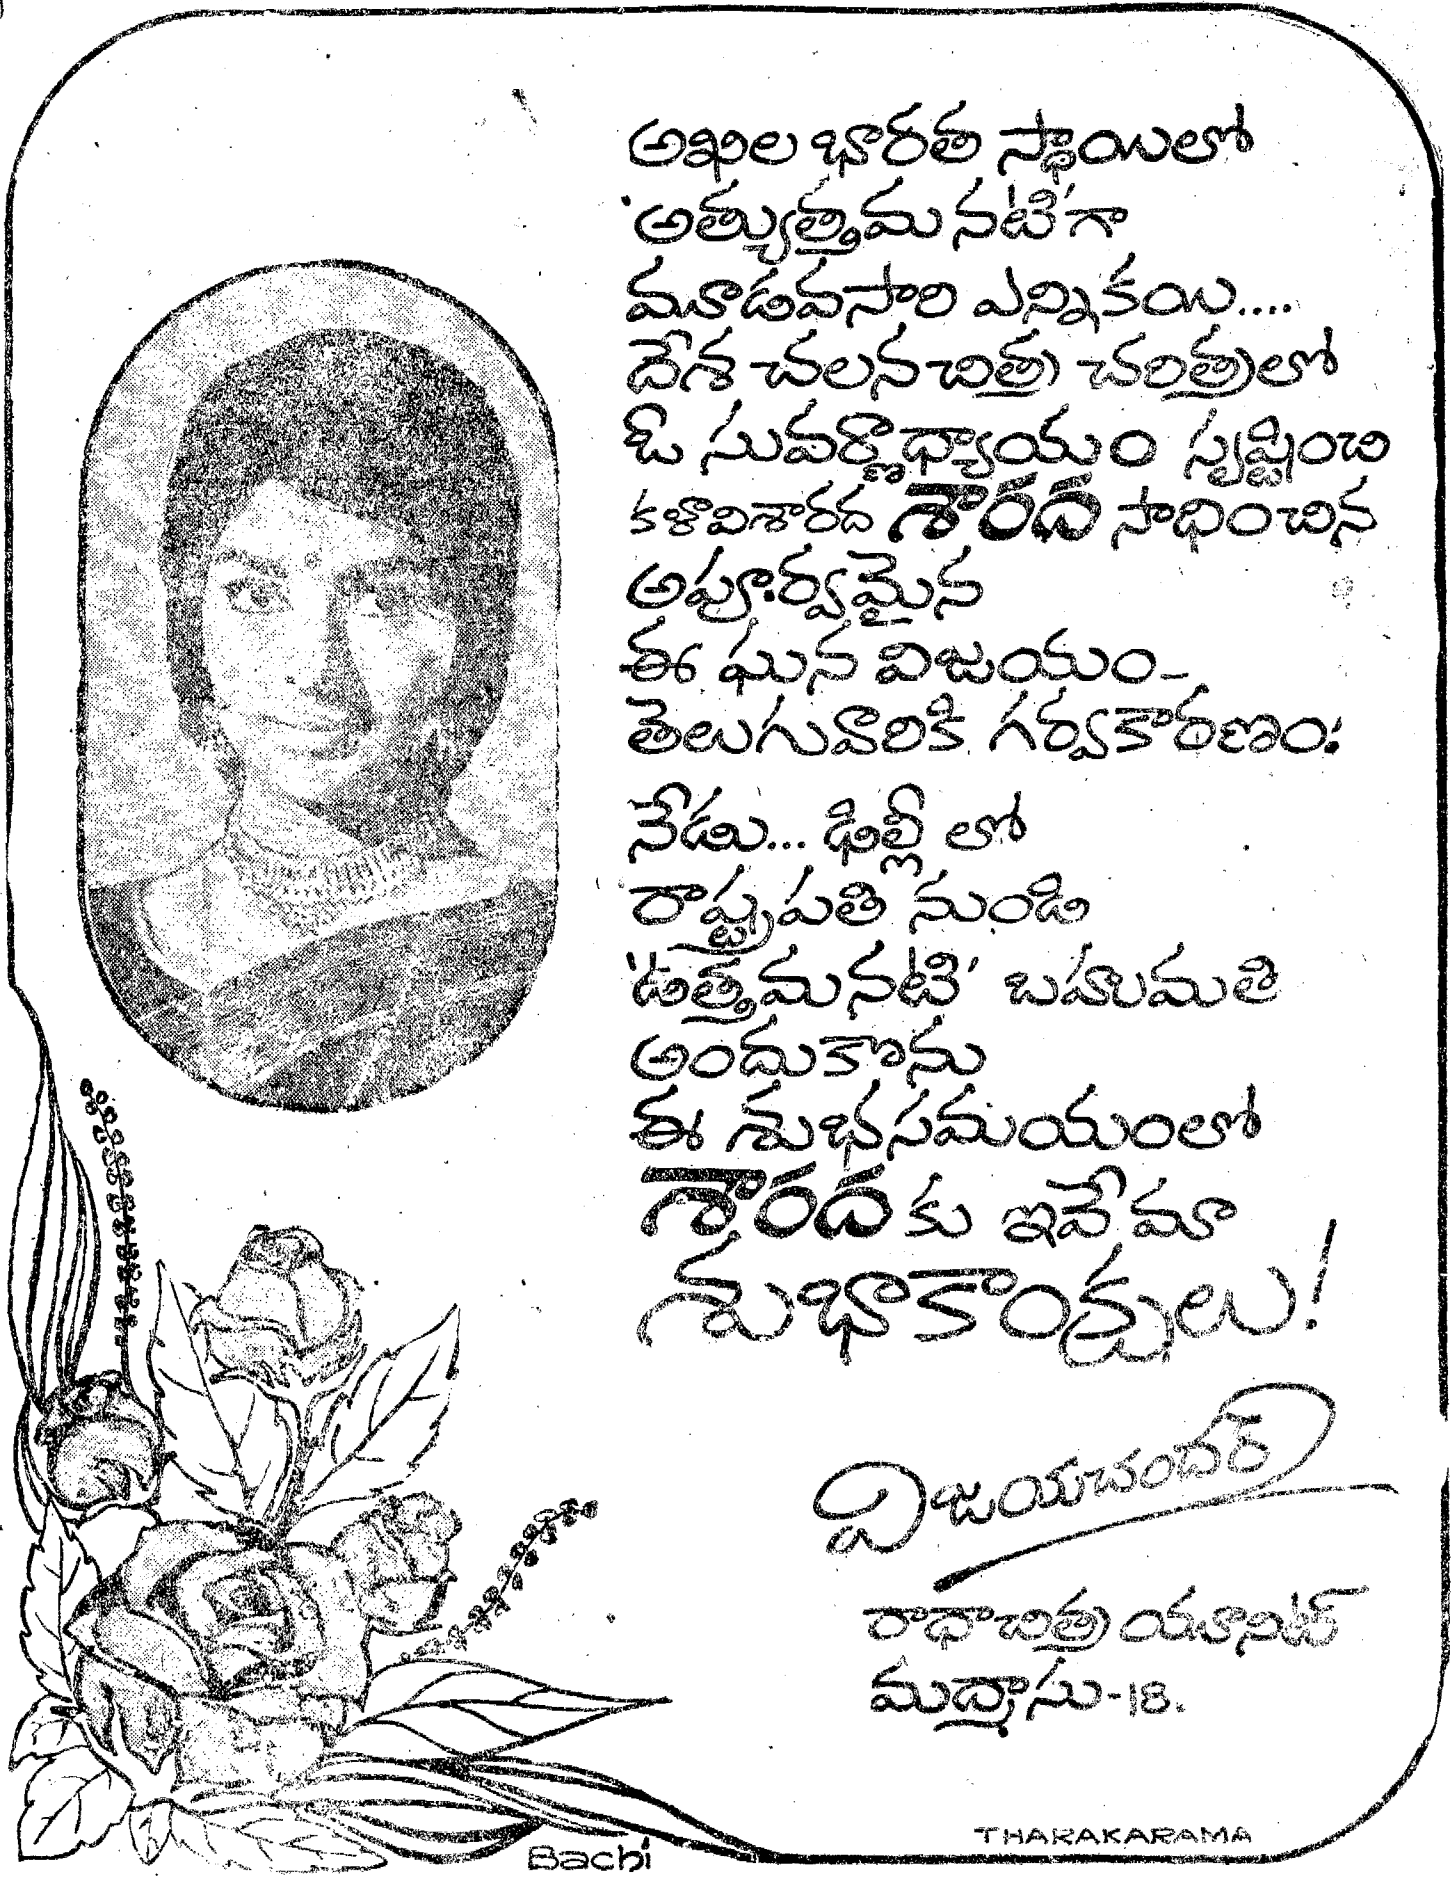 అఖిల భారత స్థాయిలో
'అత్యుత్తమ నటి'గా
మూడవసారి ఎన్నికయి....
దేశ చలన చిత్ర చరిత్రలో
ఓ సువర్ణాధ్యాయం సృష్టించి
కళావిశారద శారద సాధించిన
అపూర్వమైన
ఈ ఘన విజయం-
తెలుగువారికి గర్వకారణం!
నేడు... ఢిల్లీ లో
రాష్ట్రపతి నుండి
'ఉత్తమనటి' బహుమతి
అందుకొను
ఈ శుభసమయంలో
శారద కు ఇవే మా
శుభాకాంక్షలు!
విజయచందర్
రాధాచిత్ర యూనిట్
మద్రాసు-18.
THARAKARAMA
Bachi